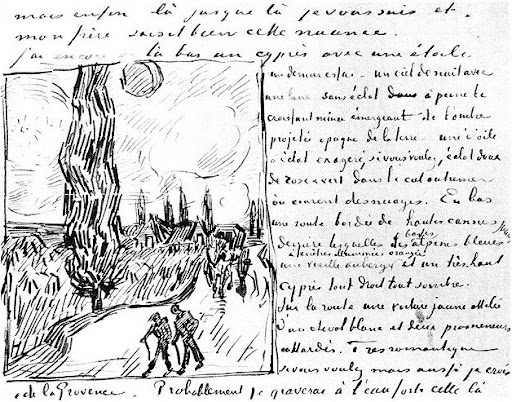 mais enfin là jusque là je vous suis et
mon frère saisit bien cette nuance.
J'ai encore de là bas un cyprès avec une étoile
un dernier essai – un ciel de nuit avec
une lune sans éclat à peine le
croissant mince émergeant de l'ombre
projetée opaque de la terre – une étoile
à éclat exagéré, si vous voulez, éclat doux
de rose & vert dans le ciel outremer
où courent des nuages. En bas
une route bordée de hautes cannes
derrière lesquelles les basses alpines bleues
une vieille auberge à fenêtres illuminées orangée et un très haut
cyprès tout droit tout sombre.
Sur la route une voiture jaune attelée
d'un cheval blanc et deux promeneurs
attardés. Très romantique
si vous voulez mais aussi je crois
de la Provence. Probablement je graverai à l'eau forte celle là